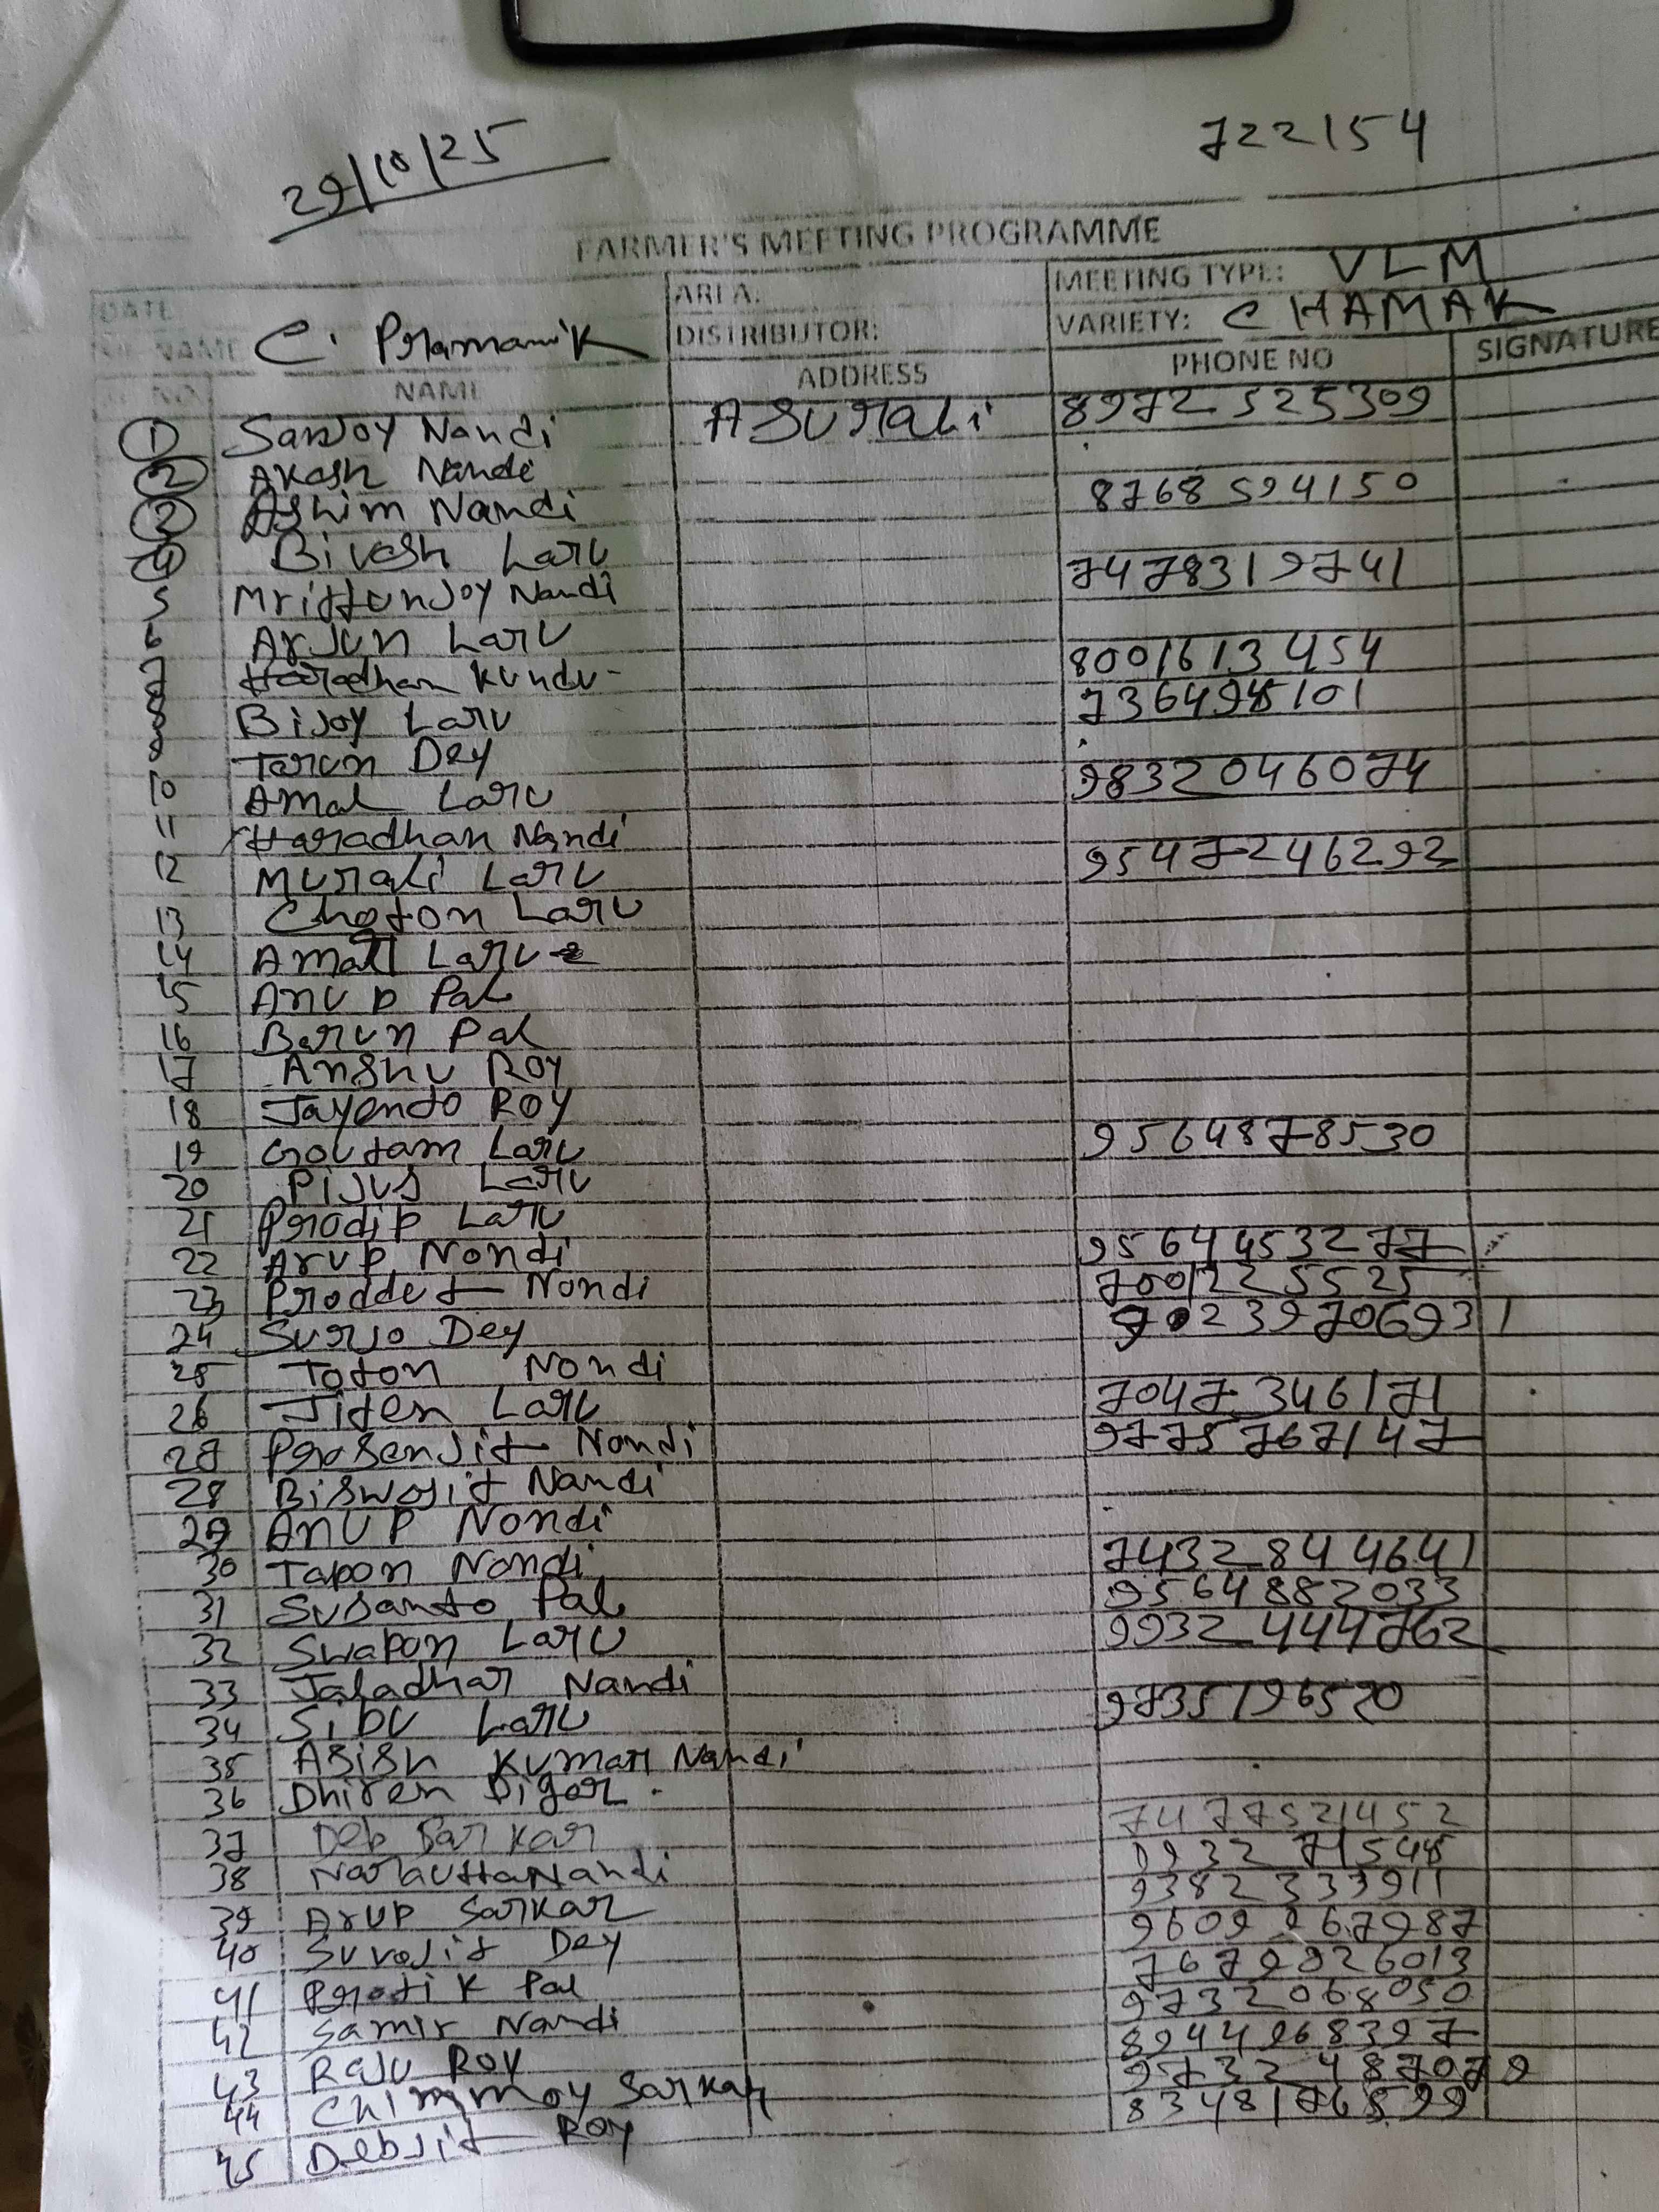 29/10/25
722154
FARMER'S MEETING PROGRAMME
DATE AREA: MEETING TYPE: VLM
NAME C. Pramanik DISTRIBUTOR: VARIETY: CHAMAK
NO NAME ADDRESS PHONE NO SIGNATURE
1 Sanjoy Nandi Asurali 8972525309
2 Akash Nandi
3 Ashim Nandi 8768594150
4 Bivash Laru
5 Mrittunjoy Nandi 7478319741
6 Arjun Laru
7 Haradhan Kundu 8001613454
8 Bijoy Laru
9 Tarun Dey
10 Amal Laru 9832046074
11 Haradhan Nandi
12 Murali Laru 9547246292
13 Choton Laru
14 Amar Laru
15 Anup Pal
16 Barun Pal
17 Anshu Roy
18 Jayento Roy
19 Goutam Laru 9564878530
20 Pijus Laru
21 Prodip Laru
22 Arup Nondi 9564453277
23 Proddut Nondi 7001225525
24 Surjo Dey
25 Toton Nondi
26 Jiten Laru 7047346171
27 Prosenjit Nondi 9775767147
28 Biswojit Nandi
29 Anup Nondi
30 Tapon Nondi 7432844641
31 Susanto Pal 9564882033
32 Swapon Laru 9932444762
33 Jaladhar Nandi
34 Sibu Laru 9735196520
35 Asish Kumar Nandi
36 Dhiren Digar
37 Deb Sarkar 7477521452
38 Nandi
39 Arup Sarkar 9382333911
40 Suvojit Dey 9609267987
41 Protik Pal 7679026013
42 Samir Nandi 9732068050
43 Raju Roy 8944968397
44 Chinmoy Sarkar
45 Debjit Roy 8348176899